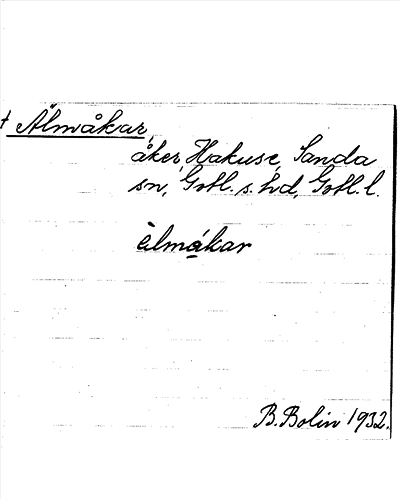 † Älmåkar,
åker, Hakuse, Sanda
sn, Gotl. s. hd, Gotl. l.
èlmåkar
B. Bolin 1932.